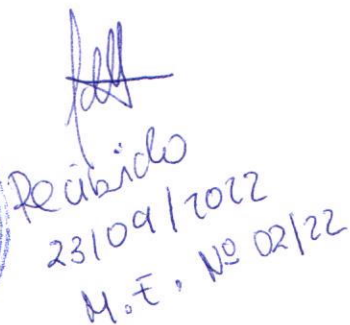 Recibido
23/09/2022
M.E. Nº 02/22